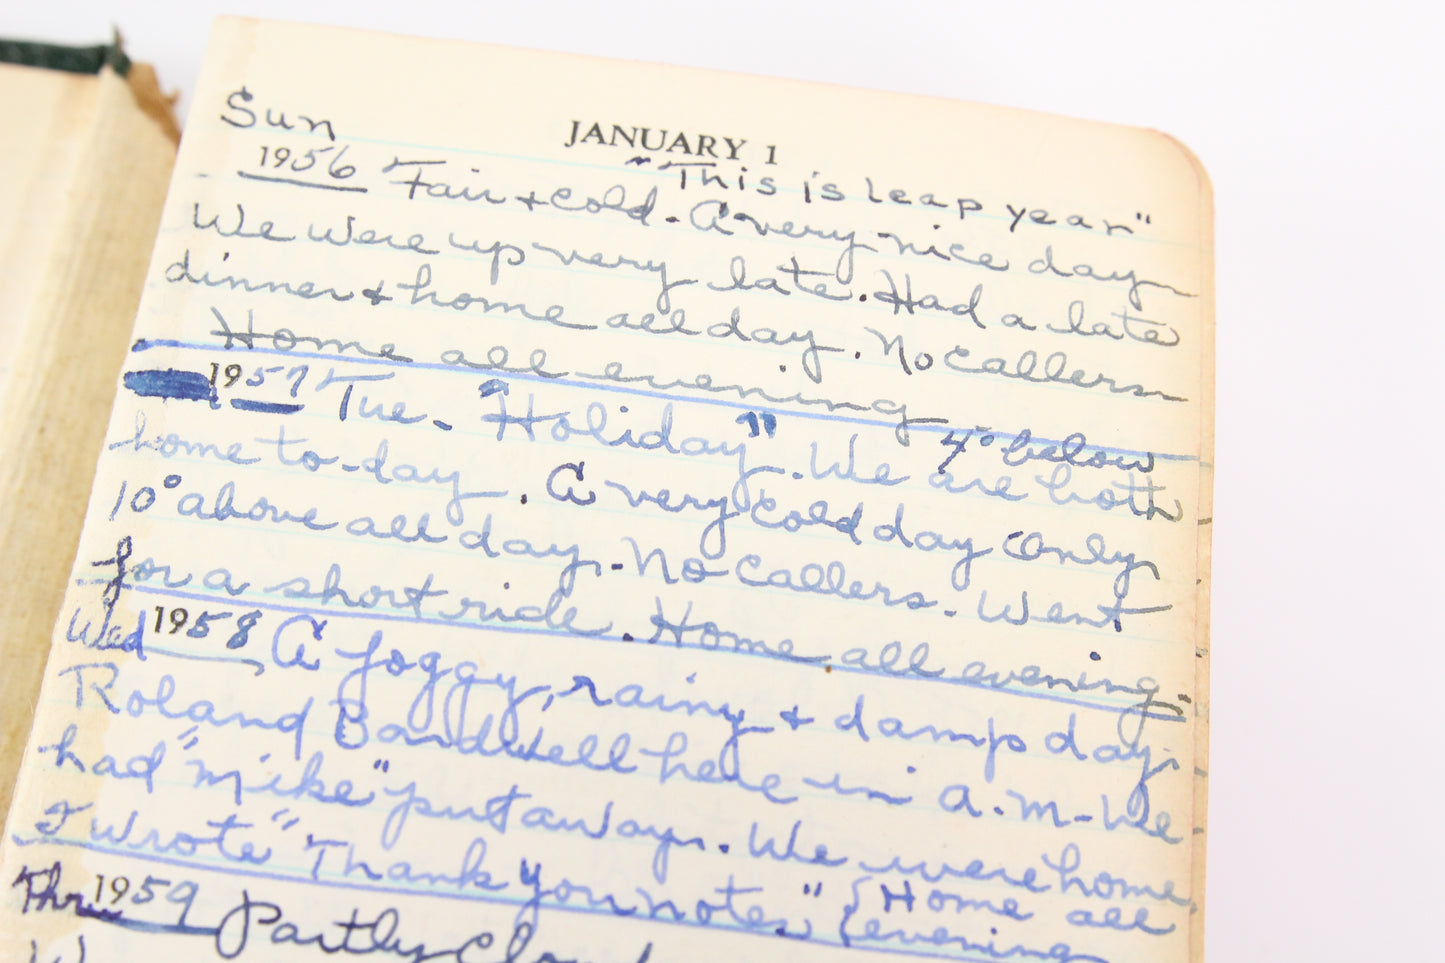 JANUARY 1
Sun
"This is leap year"
1956 Fair + cold - A very nice day
We were up very late. Had a late
dinner + home all day. No callers
Home all evening
1957 Tue - "Holiday". We are both
4° below
home to-day. A very cold day only
10° above all day. - No callers - Went
for a short ride. Home all evening -
Wed 1958 A foggy, rainy + damp day -
Roland Bardwell here in A.M - We
had "Mike" put away. We were home
I wrote "Thank you notes" {Home all
evening
Thr 1959 Partly